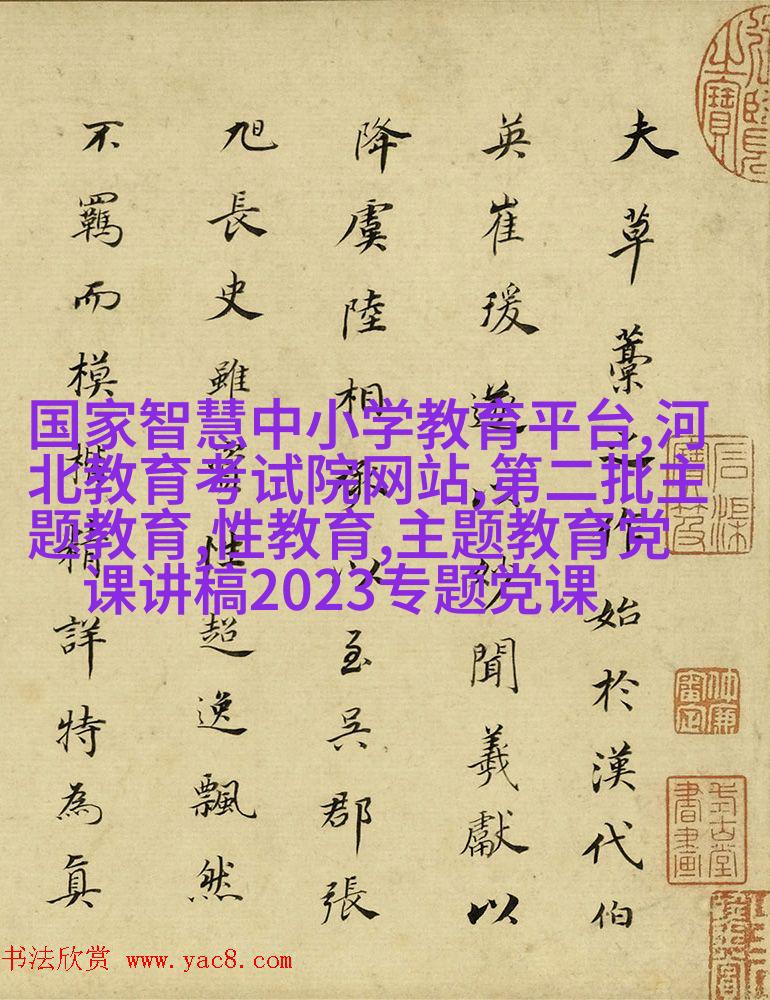 夫草藁之作始於漢代伯
英崔瑗遂以妙聞羲獻以
降虞陸相承以至吳郡張
旭長史雖姿性超逸飄然
不羈而模楷精詳特為真
国家智慧中小学教育平台,河
北教育考试院网站,第二批主
题教育,性教育,主题教育党
课讲稿2023专题党课
书法欣赏 www.yac8.com